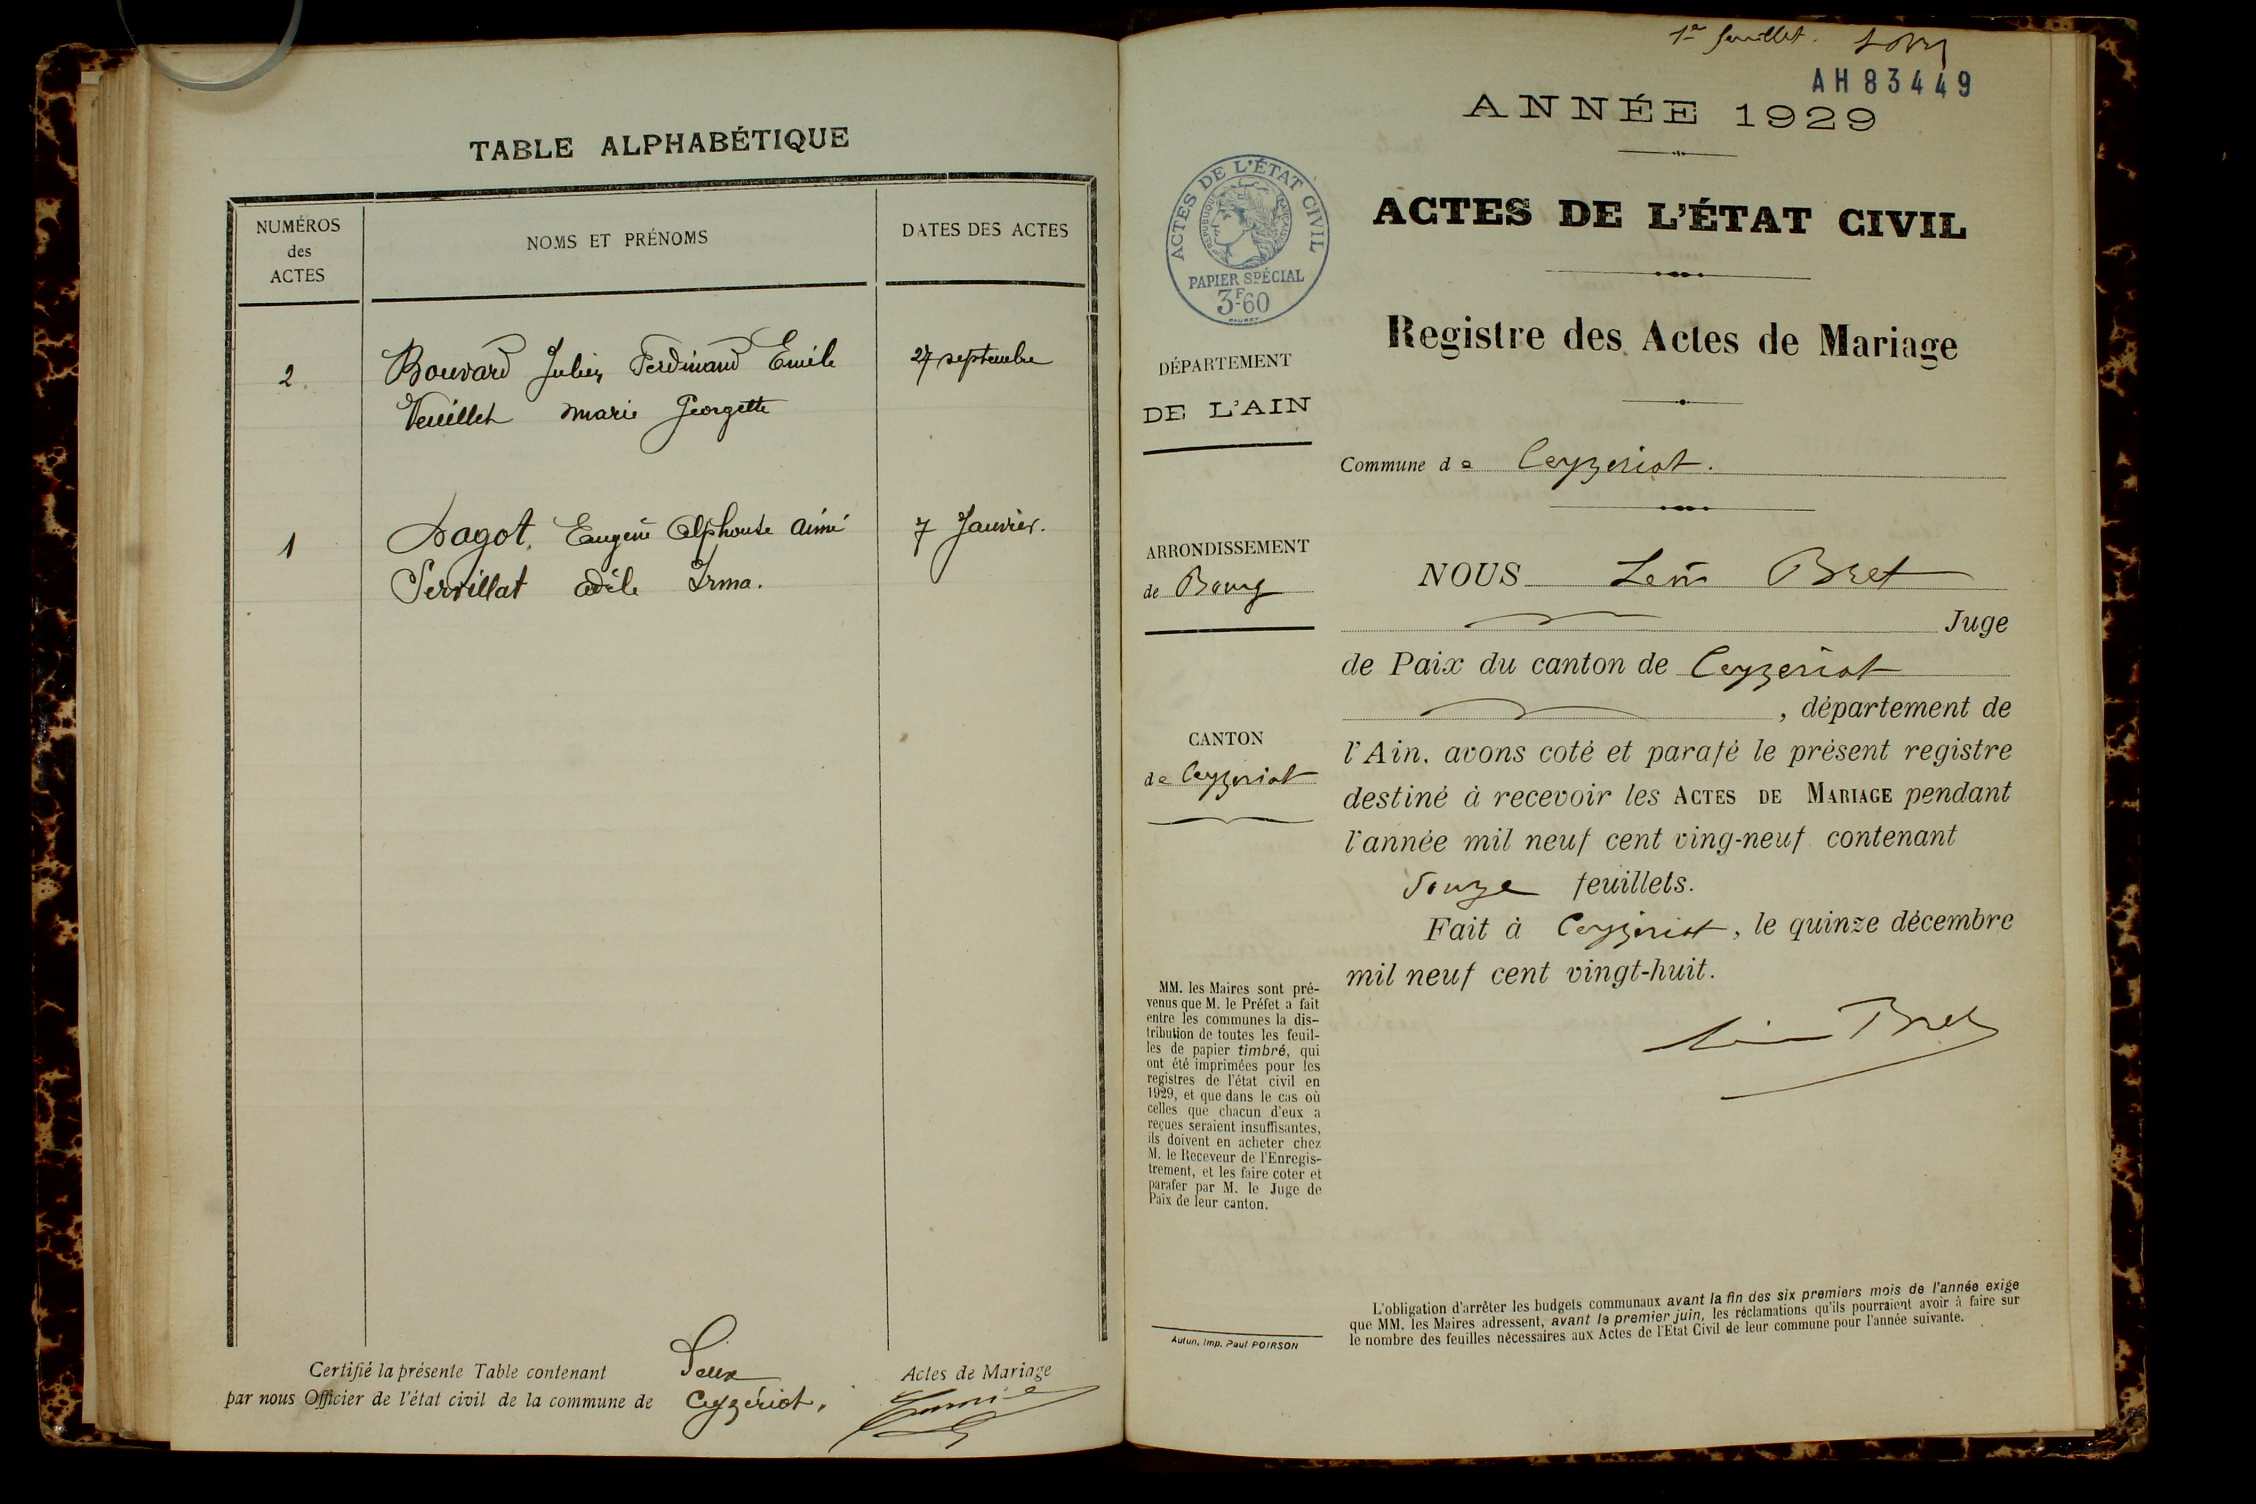 TABLE ALPHABÉTIQUE
NUMÉROS
des
ACTES
NOMS ET PRÉNOMS
DATES DES ACTES
2
Bouvard Julien Ferdinand Emile
27 septembre
Veuillet Marie Georgette
1
Dagot, Eugène Alphonse Aimé
7 Janvier.
Servillat Adèle Irma.
Certifié la présente Table contenant Deux Actes de Mariage
par nous Officier de l'état civil de la commune de Ceyzériat.
1er feuillet.
AH83449
ANNÉE 1929
ACTES DE L'ÉTAT CIVIL
RÉPUBLIQUE FRANÇAISE
PAPIER SPÉCIAL
3F60
ACTES DE L'ÉTAT CIVIL
Registre des Actes de Mariage
DÉPARTEMENT
DE L'AIN
Commune de Ceyzeriat.
ARRONDISSEMENT
de Bourg
CANTON
de Ceyzeriat
NOUS Léon Bret
Juge
de Paix du canton de Ceyzeriat
, département de
l'Ain, avons coté et parafé le présent registre
destiné à recevoir les ACTES DE MARIAGE pendant
l'année mil neuf cent ving-neuf contenant
douze feuillets.
Fait à Ceyzériat, le quinze décembre
mil neuf cent vingt-huit.
Léon Bret
MM. les Maires sont pré-
venus que M. le Préfet a fait
entre les communes la dis-
tribution de toutes les feuil-
les de papier timbré, qui
ont été imprimées pour les
registres de l'état civil en
1929, et que dans le cas où
celles que chacun d'eux a
reçues seraient insuffisantes,
ils doivent en acheter chez
M. le Receveur de l'Enregis-
trement, et les faire coter et
parafer par M. le Juge de
Paix de leur canton.
Autun, Imp. Paul POIRSON
L'obligation d'arrêter les budgets communaux avant la fin des six premiers mois de l'année exige
que MM. les Maires adressent, avant le premier juin, les réclamations qu'ils pourraient avoir à faire sur
le nombre des feuilles nécessaires aux Actes de l'Etat Civil de leur commune pour l'année suivante.